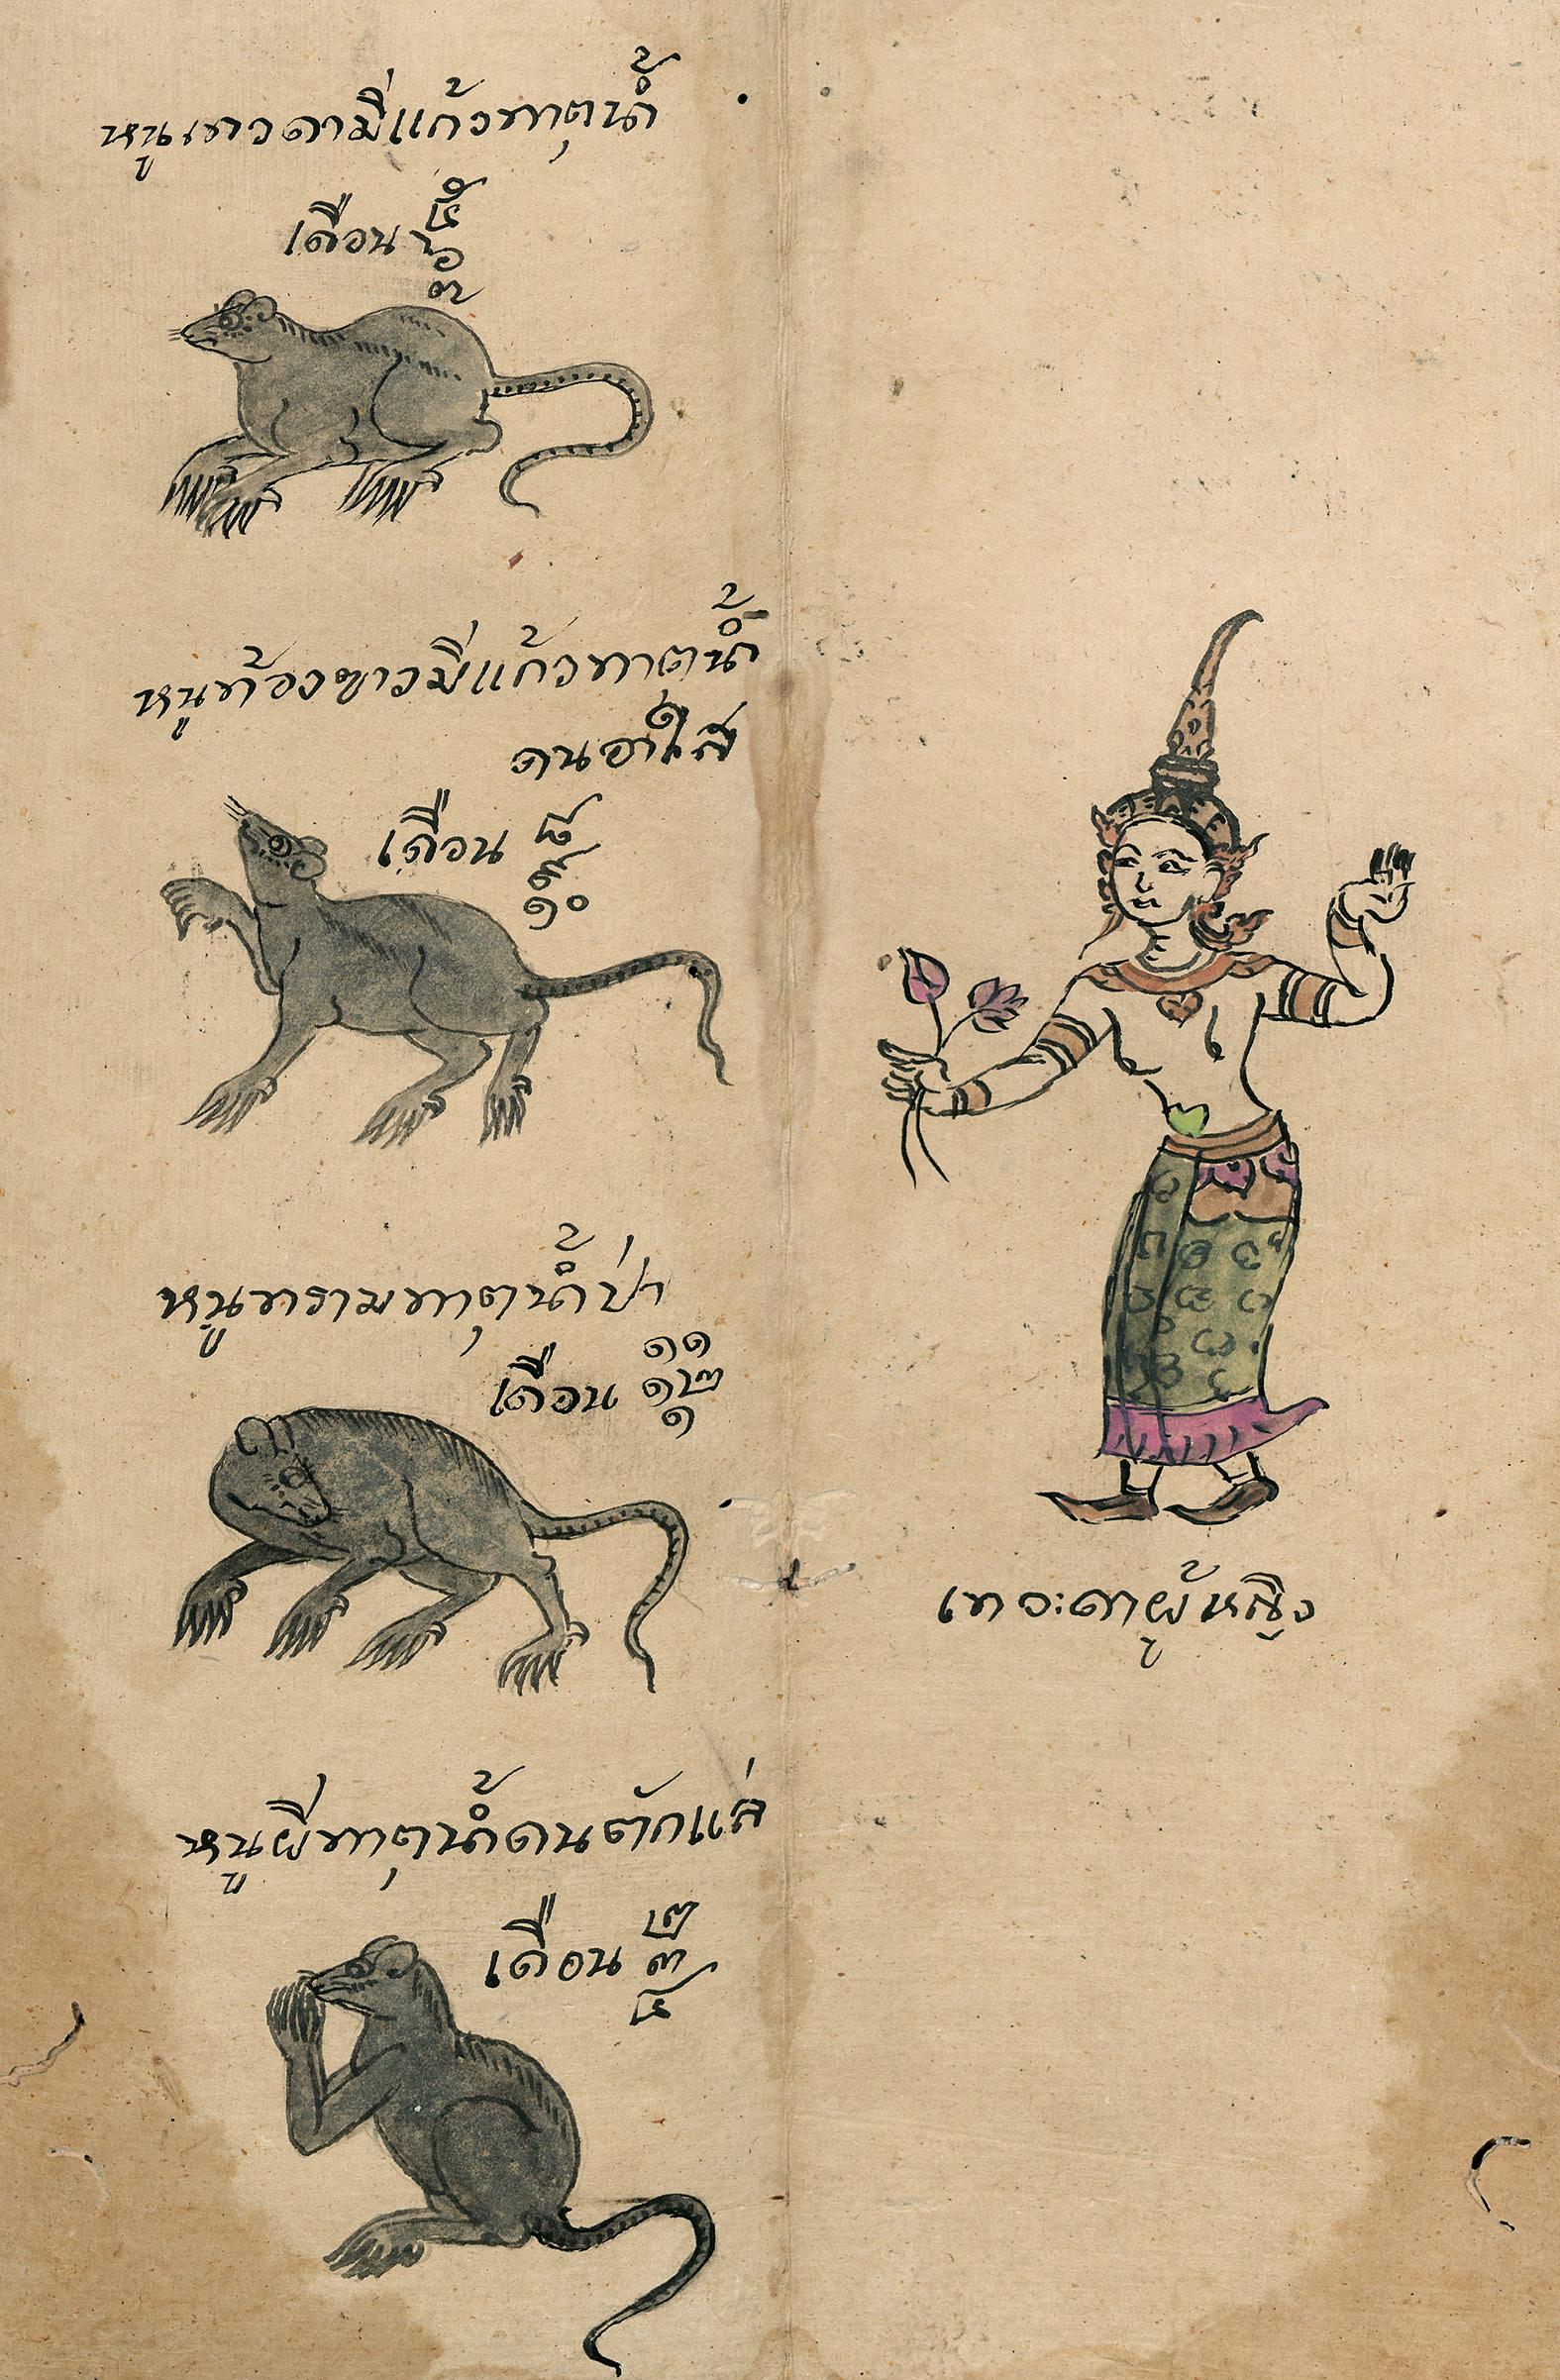 หนูเทวดามีแก้วทาตุน้ำ
เดือน ๕
๖
๗
หนูท้องขาวมีแก้วทาตุน้ำ
เดือน ๘
๙
๑๐
หนูทรามทาตุน้ำป่า
เดือน ๑๑
๑๒
๑
หนูผีทาตุน้ำ
เดือน ๒
๓
๔
เทวะดาผู้หญิง